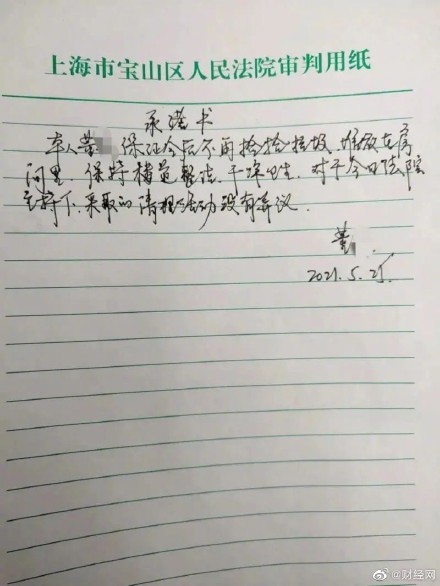 上海市宝山区人民法院审判用纸
承诺书
本人董 保证今后不再捡拾垃圾,堆放在房
间里,保持楼道整洁、干净卫生,对于今日法院
主持下,采取的清理活动没有异议.
董
2021.5.25.
@财经网